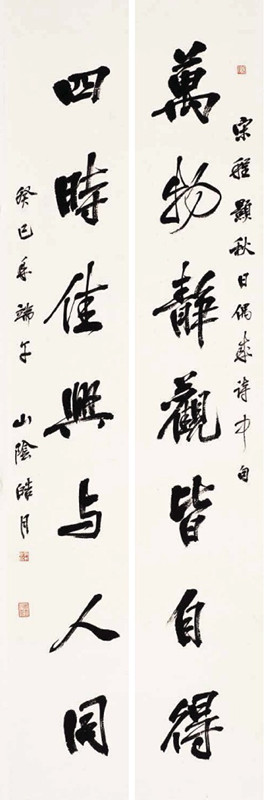 宋程顥秋日偶成詩中句
萬物靜觀皆自得
四時佳興与人同
癸巳年端午
山陰皓月